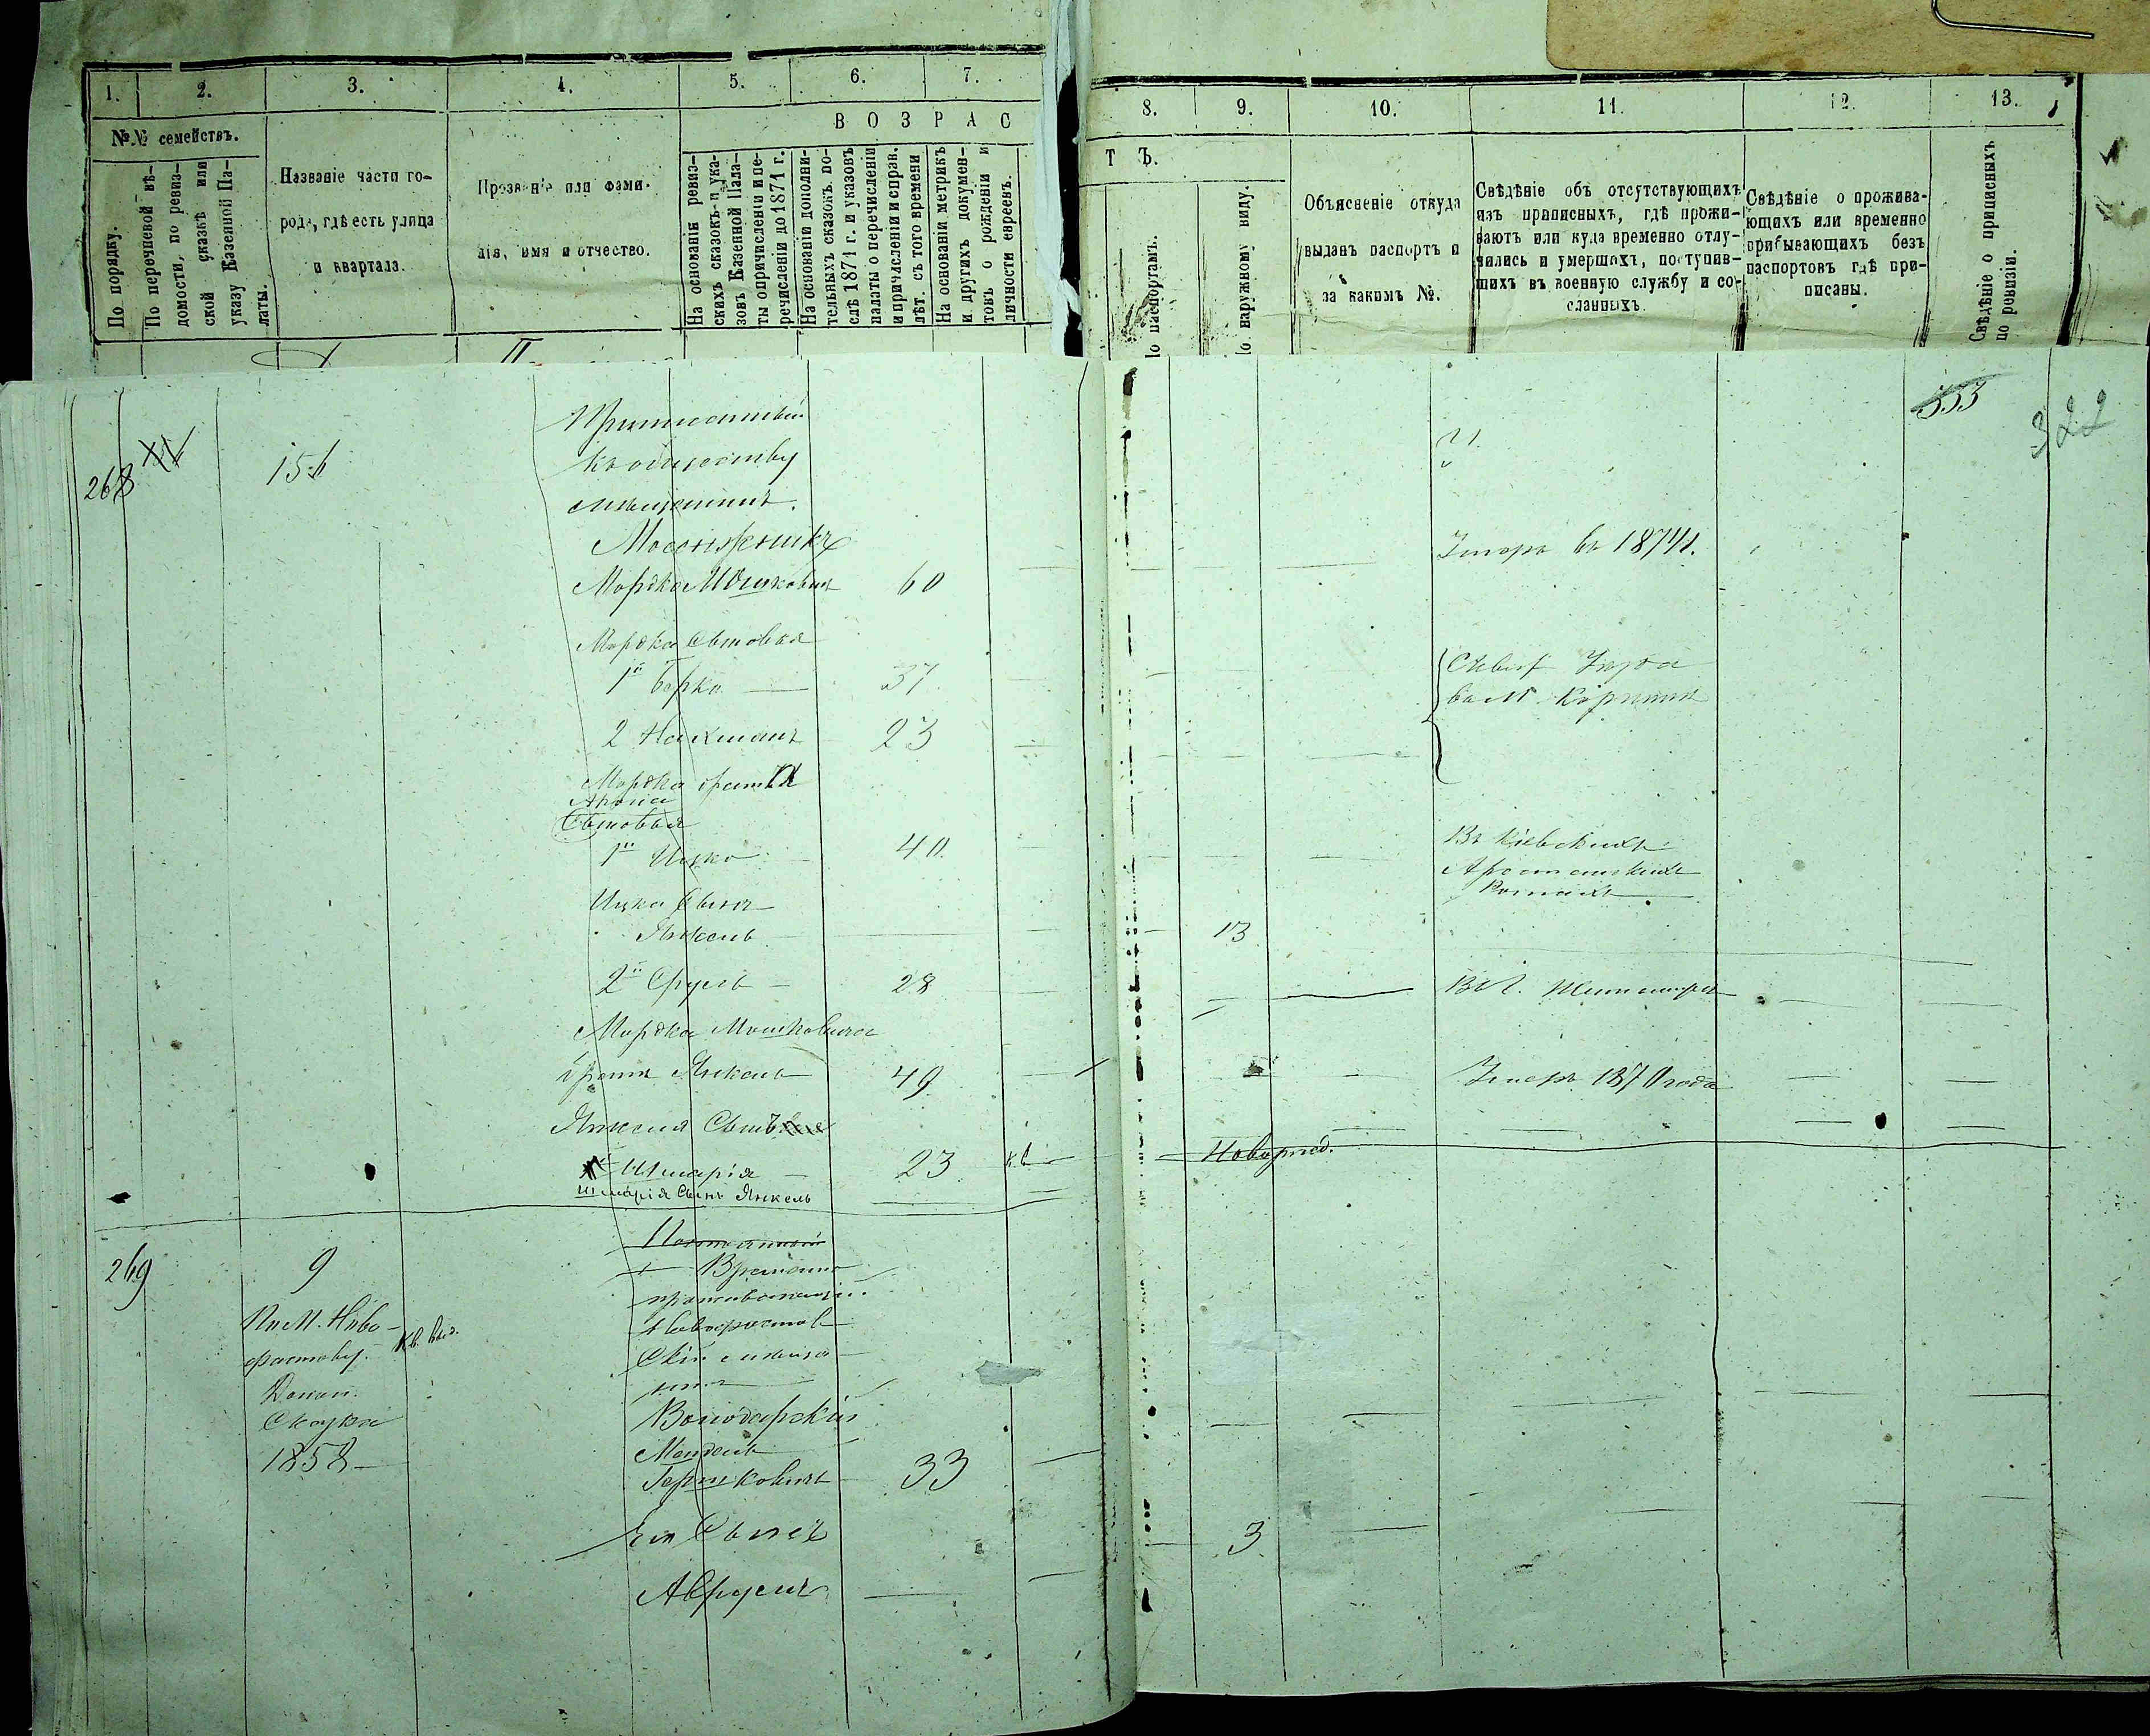 1.
2.
3.
4.
5.
6.
7.
8.
9.
10.
11.
12.
13.
№.№ семействъ.
По порядку.
По перечневой вѣ-
домости, по ревиз-
ской сказкѣ или
указу Казенной Па-
латы.
Названіе части го-
рода, гдѣ есть улица
и квартала.
Прозваніе или фами-
лія, имя и отчество.
В О З Р А С
Т Ъ.
На основаніи ревиз-
скихъ сказокъ и ука-
зовъ Казенной Пала-
ты о причисленіи и пе-
речисленіи до 1871 г.
На основаніи дополни-
тельныхъ сказокъ по-
слѣ 1871 г. и указовъ
палаты о перечисленіи
и причисленіи и справ.
лѣт. съ того времени
На основаніи метрикъ
и другихъ докумен-
товъ о рожденіи и
личности евреевъ.
По паспортамъ.
По наружному виду.
Объясненіе откуда
выданъ паспортъ и
за какимъ №.
Свѣдѣніе объ отсутствующихъ
изъ приписныхъ, гдѣ прожи-
ваютъ или куда временно отлу-
чились и умершихъ, поступив-
шихъ въ военную службу и со-
сланныхъ.
Свѣдѣніе о прожива-
ющихъ или временно
прибывающихъ безъ
паспортовъ гдѣ при-
писаны.
Свѣдѣніе о приписныхъ
по ревизіи.
353
322
268 XV 156
Приписанный
къ обществу
мѣщанинъ.
Мосенжникъ
Мордко Мошковичъ 60 Умеръ въ 1874 г.
Мордка Сыновья
1й Берко 37
2 Нахманъ 23
въ М. Корнинѣ
Мордка брата
Арона
Сыновья
1й Ицко 40 Въ Кіевскихъ
Арестанскихъ
Ротахъ
Ицка Сынъ
Янкель 13
2й Сруль 28 Въ Г. Житомірѣ
Мордка Мошковича
братъ Янкель 49 Умеръ 1870 года
Янкеля Сынъ
Шмарія 23 кв
Шмарія Сынъ Янкель Новорожд.
269 9
По М. Ново-
фастову.
Сказка
1858
Временно
проживающій
Новофастов-
скій мѣща-
нинъ
Володарскій
Мендель
Гершковичъ 33
Его Сынъ 3
Аврумъ